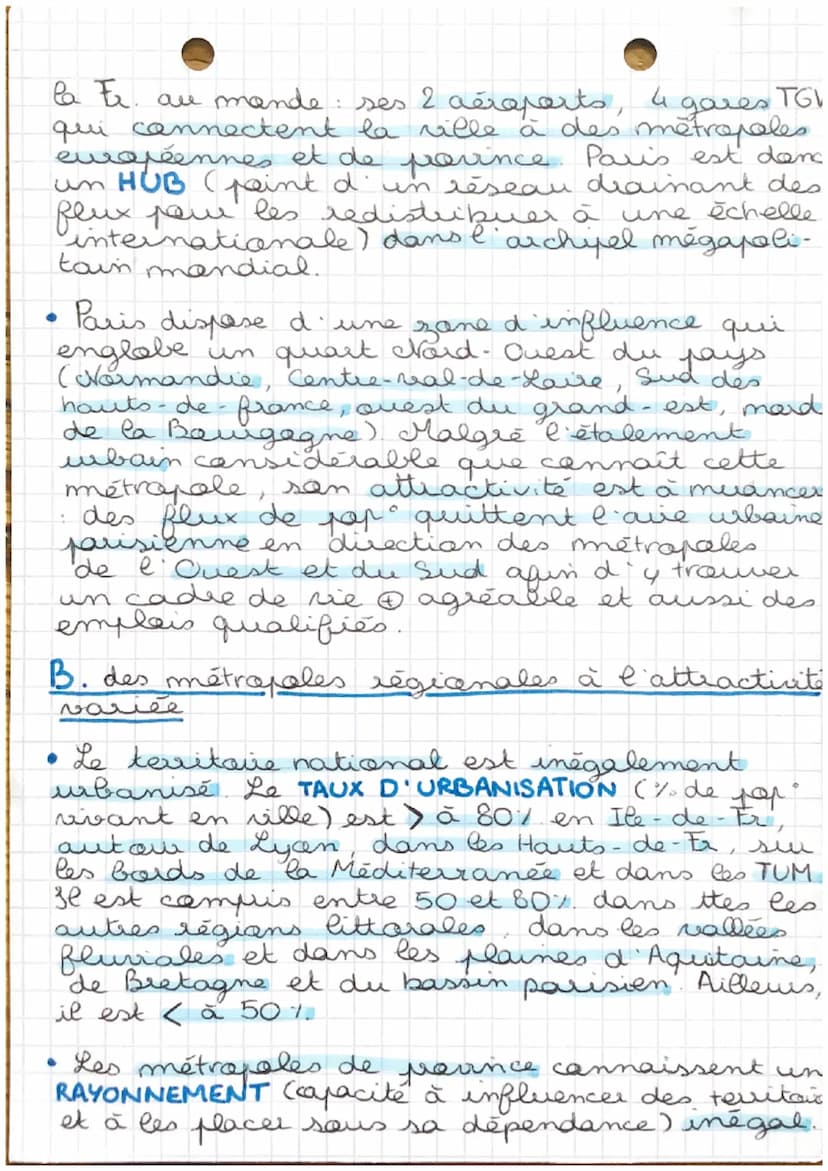 la Fr. au monde : ses 2 aéroports, 4 gares TGV
qui connectent la ville à des métropoles
européennes et de province. Paris est donc
un HUB (point d'un réseau drainant des
flux pour les redistribuer à une échelle
internationale) dans l'archipel mégapoli-
tain mondial.
• Paris dispose d'une zone d'influence qui
englobe un quart Nord-Ouest du pays
(Normandie, Centre-val-de-Loire, Sud des
hauts-de-france, ouest du grand-est, nord
de la Bourgogne). Malgré l'étalement
urbain considérable que connaît cette
métropole, son attractivité est à nuancer
: des flux de pop° quittent l'aire urbaine
parisienne en direction des métropoles
de l'Ouest et du Sud afin d'y trouver
un cadre de vie ⊕ agréable et aussi des
emplois qualifiés.
B. des métropoles régionales à l'attractivité
variée
• Le territoire national est inégalement
urbanisé. Le TAUX D'URBANISATION (% de pop°
vivant en ville) est > à 80% en Ile-de-Fr,
autour de Lyon, dans les Hauts-de-Fr, sur
les Bords de la Méditerranée et dans les TUM.
Il est compris entre 50 et 80% dans ttes les
autres régions littorales, dans les vallées
fluviales et dans les plaines d'Aquitaine,
de Bretagne et du bassin parisien. Ailleurs,
il est < à 50%.
• Les métropoles de province connaissent un
RAYONNEMENT (capacité à influencer des territoir
et à les placer sous sa dépendance) inégal.